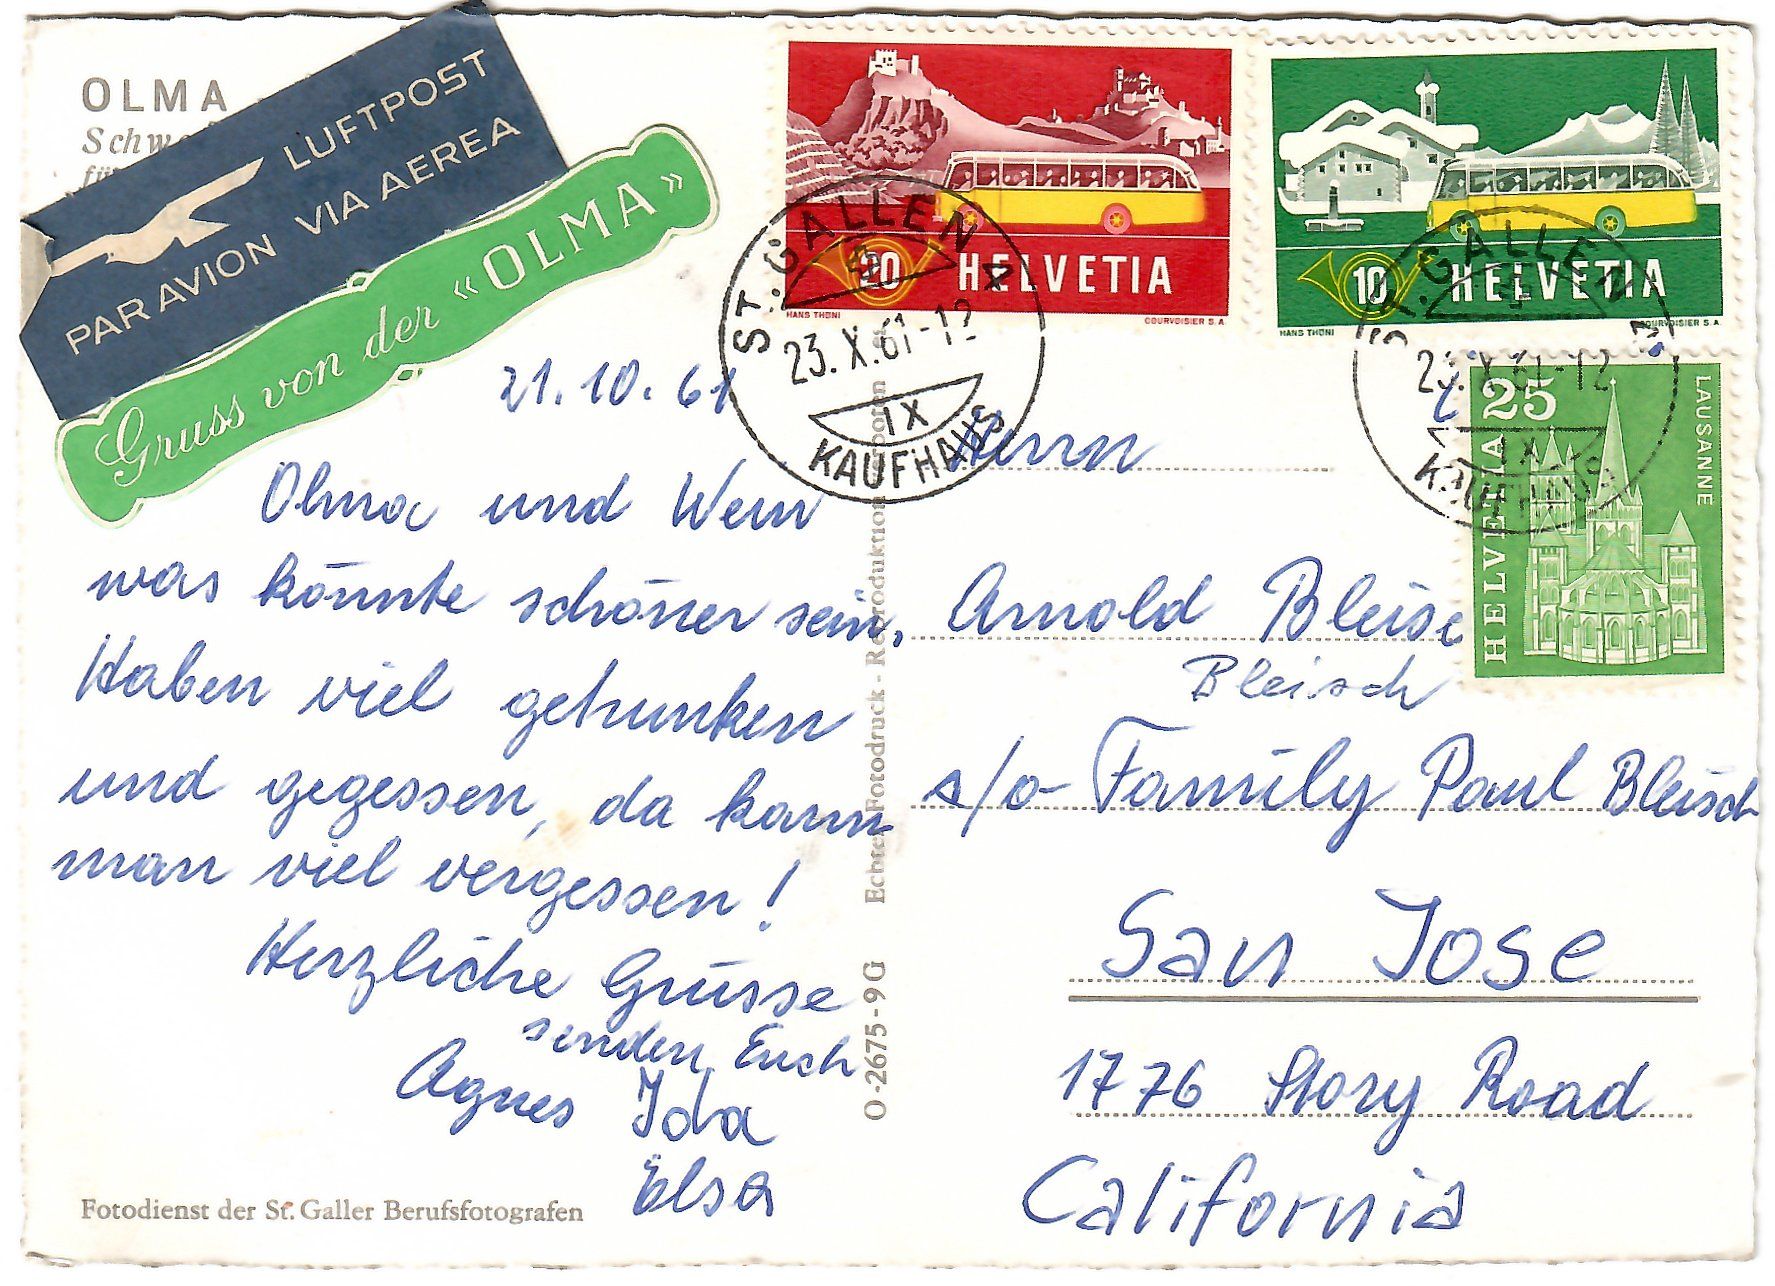 OLMA
LUFTPOST
PAR AVION VIA AEREA
Gruss von der «OLMA»
21.10.61
Olma und Wein
was könnte schöner sein,
Haben viel getrunken
und gegessen, da kann
man viel vergessen!
Herzliche Grüsse
senden Euch
Agnes Ida
Elsa
Fotodienst der St. Galler Berufsfotografen
O-2675-9G Echter Fotodruck - Reproduktion verboten
HELVETIA
20
HANS THÖNI
COURVOISIER S.A.
HELVETIA
10
HANS THÖNI
COURVOISIER S.A.
25
HELVETIA
LAUSANNE
ST. GALLEN 4
23.X.61-12
IX
KAUFHAUS
ST. GALLEN
23.X.61-12
IX
KAUFHAUS
Herrn
Arnold Bleisc
Bleisch
c/o Family Paul Bleisch
San Jose
1776 Story Road
California